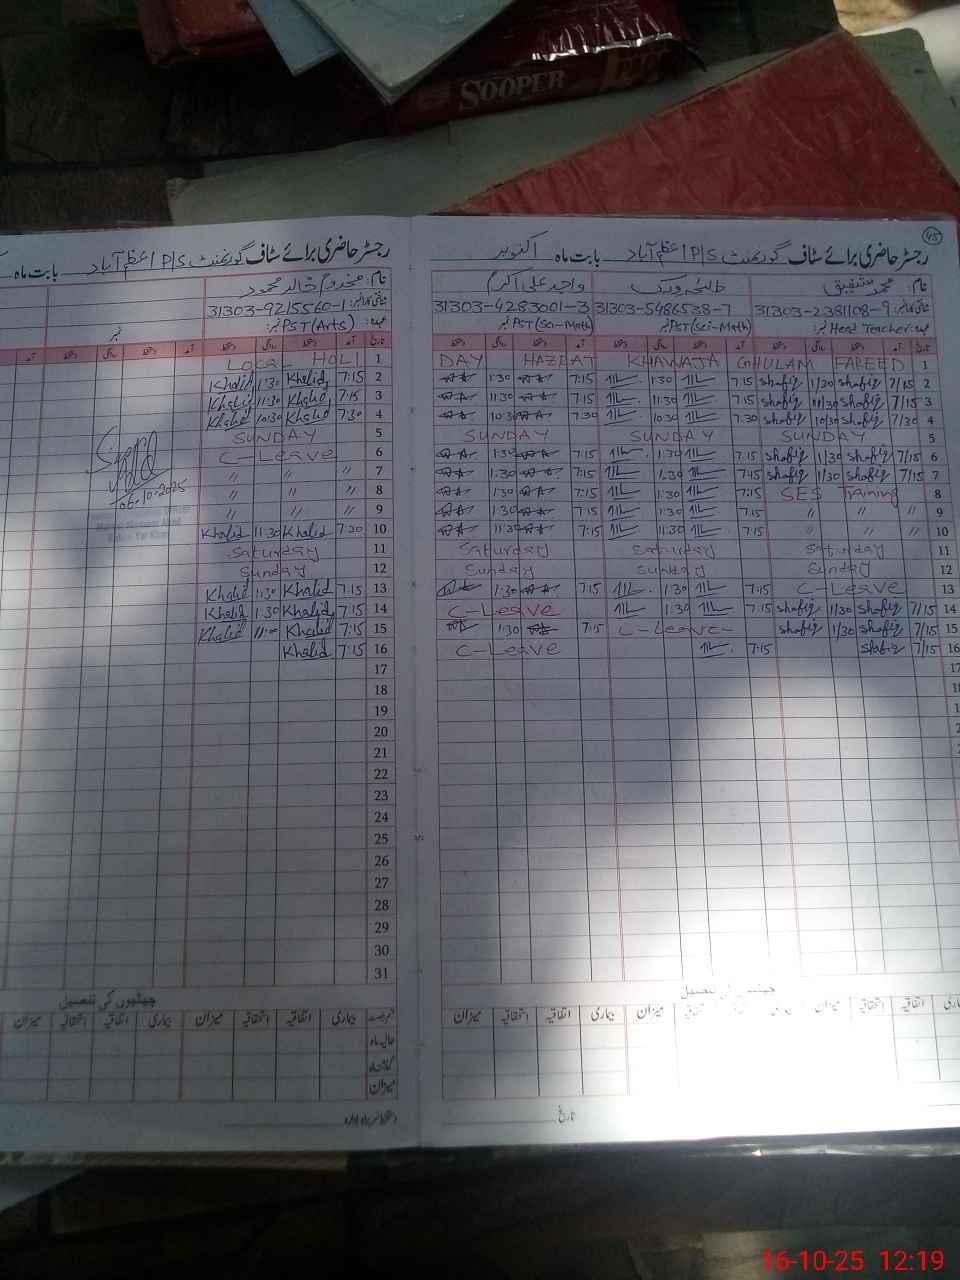 SOOPER
45
رجسٹر حاضری برائے سٹاف گورنمنٹ P/S اعظم آباد بابت ماہ اکتوبر
نام: محمد شفیق طلحہ ورک واجد علی اکرم
شناختی کارڈ نمبر: 31303-2381108-9 31303-5486538-7 31303-4283001-3
عہدہ: Head Teacher نمبر PST(Sci-Math) نمبر PST(Sci-Math) نمبر
تاریخ آمد دستخط روانگی دستخط آمد دستخط روانگی دستخط آمد دستخط روانگی دستخط
DAY HAZRAT KHAWAJA GHULAM FAREED 1
1:30 7:15 1:30 7:15 Shafiq 1/30 Shafiq 7/15 2
11:30 7:15 11:30 7:15 Shafiq 11/30 Shafiq 7/15 3
10:30 7:30 10:30 7:30 Shafiq 10/30 Shafiq 7/30 4
SUNDAY SUNDAY SUNDAY 5
1:30 7:15 1:30 7:15 Shafiq 1/30 Shafiq 7/15 6
1:30 7:15 1:30 7:15 Shafiq 1/30 Shafiq 7/15 7
1:30 7:15 1:30 7:15 SES Training 8
1:30 7:15 1:30 7:15 〃 〃 〃 9
11:30 7:15 11:30 7:15 〃 〃 〃 10
Saturday Saturday Saturday 11
Sunday Sunday Sunday 12
1:30 7:15 1:30 7:15 C-Leave 13
C-Leave 1:30 7:15 Shafiq 1/30 Shafiq 7/15 14
1:30 7:15 C-Leave Shafiq 1/30 Shafiq 7/15 15
C-Leave 7:15 Shafiq 7/15 16
17
18
چھٹیوں کی تفصیل
اتفاقیہ میزان بیماری اتفاقیہ استحقاقیہ میزان
تاریخ
رجسٹر حاضری برائے سٹاف گورنمنٹ P/S اعظم آباد بابت ماہ
نام: مخدوم خالد محمود
شناختی کارڈ نمبر: 31303-9215560-1
عہدہ: PST(Arts) نمبر
تاریخ آمد دستخط روانگی دستخط آمد دستخط روانگی دستخط آمد
Local HOLI 1
Khalid 1:30 Khalid 7:15 2
Khalid 11:30 Khalid 7:15 3
Khalid 10:30 Khalid 7:30 4
SUNDAY 5
C-Leave 6
〃 〃 〃 7
〃 〃 〃 8
06-10-2025
〃 〃 〃 9
Khalid 11:30 Khalid 7:20 10
Saturday 11
Sunday 12
Khalid 1:30 Khalid 7:15 13
Khalid 1:30 Khalid 7:15 14
Khalid Khalid 7:15 15
Khalid 7:15 16
17
18
19
20
21
22
23
24
25
26
27
28
29
30
31
چھٹیوں کی تفصیل
قسم رخصت بیماری اتفاقیہ استحقاقیہ میزان بیماری اتفاقیہ استحقاقیہ میزان
حالیہ ماہ
گذشتہ ماہ
میزان
دستخط سربراہ ادارہ
16-10-25 12:19